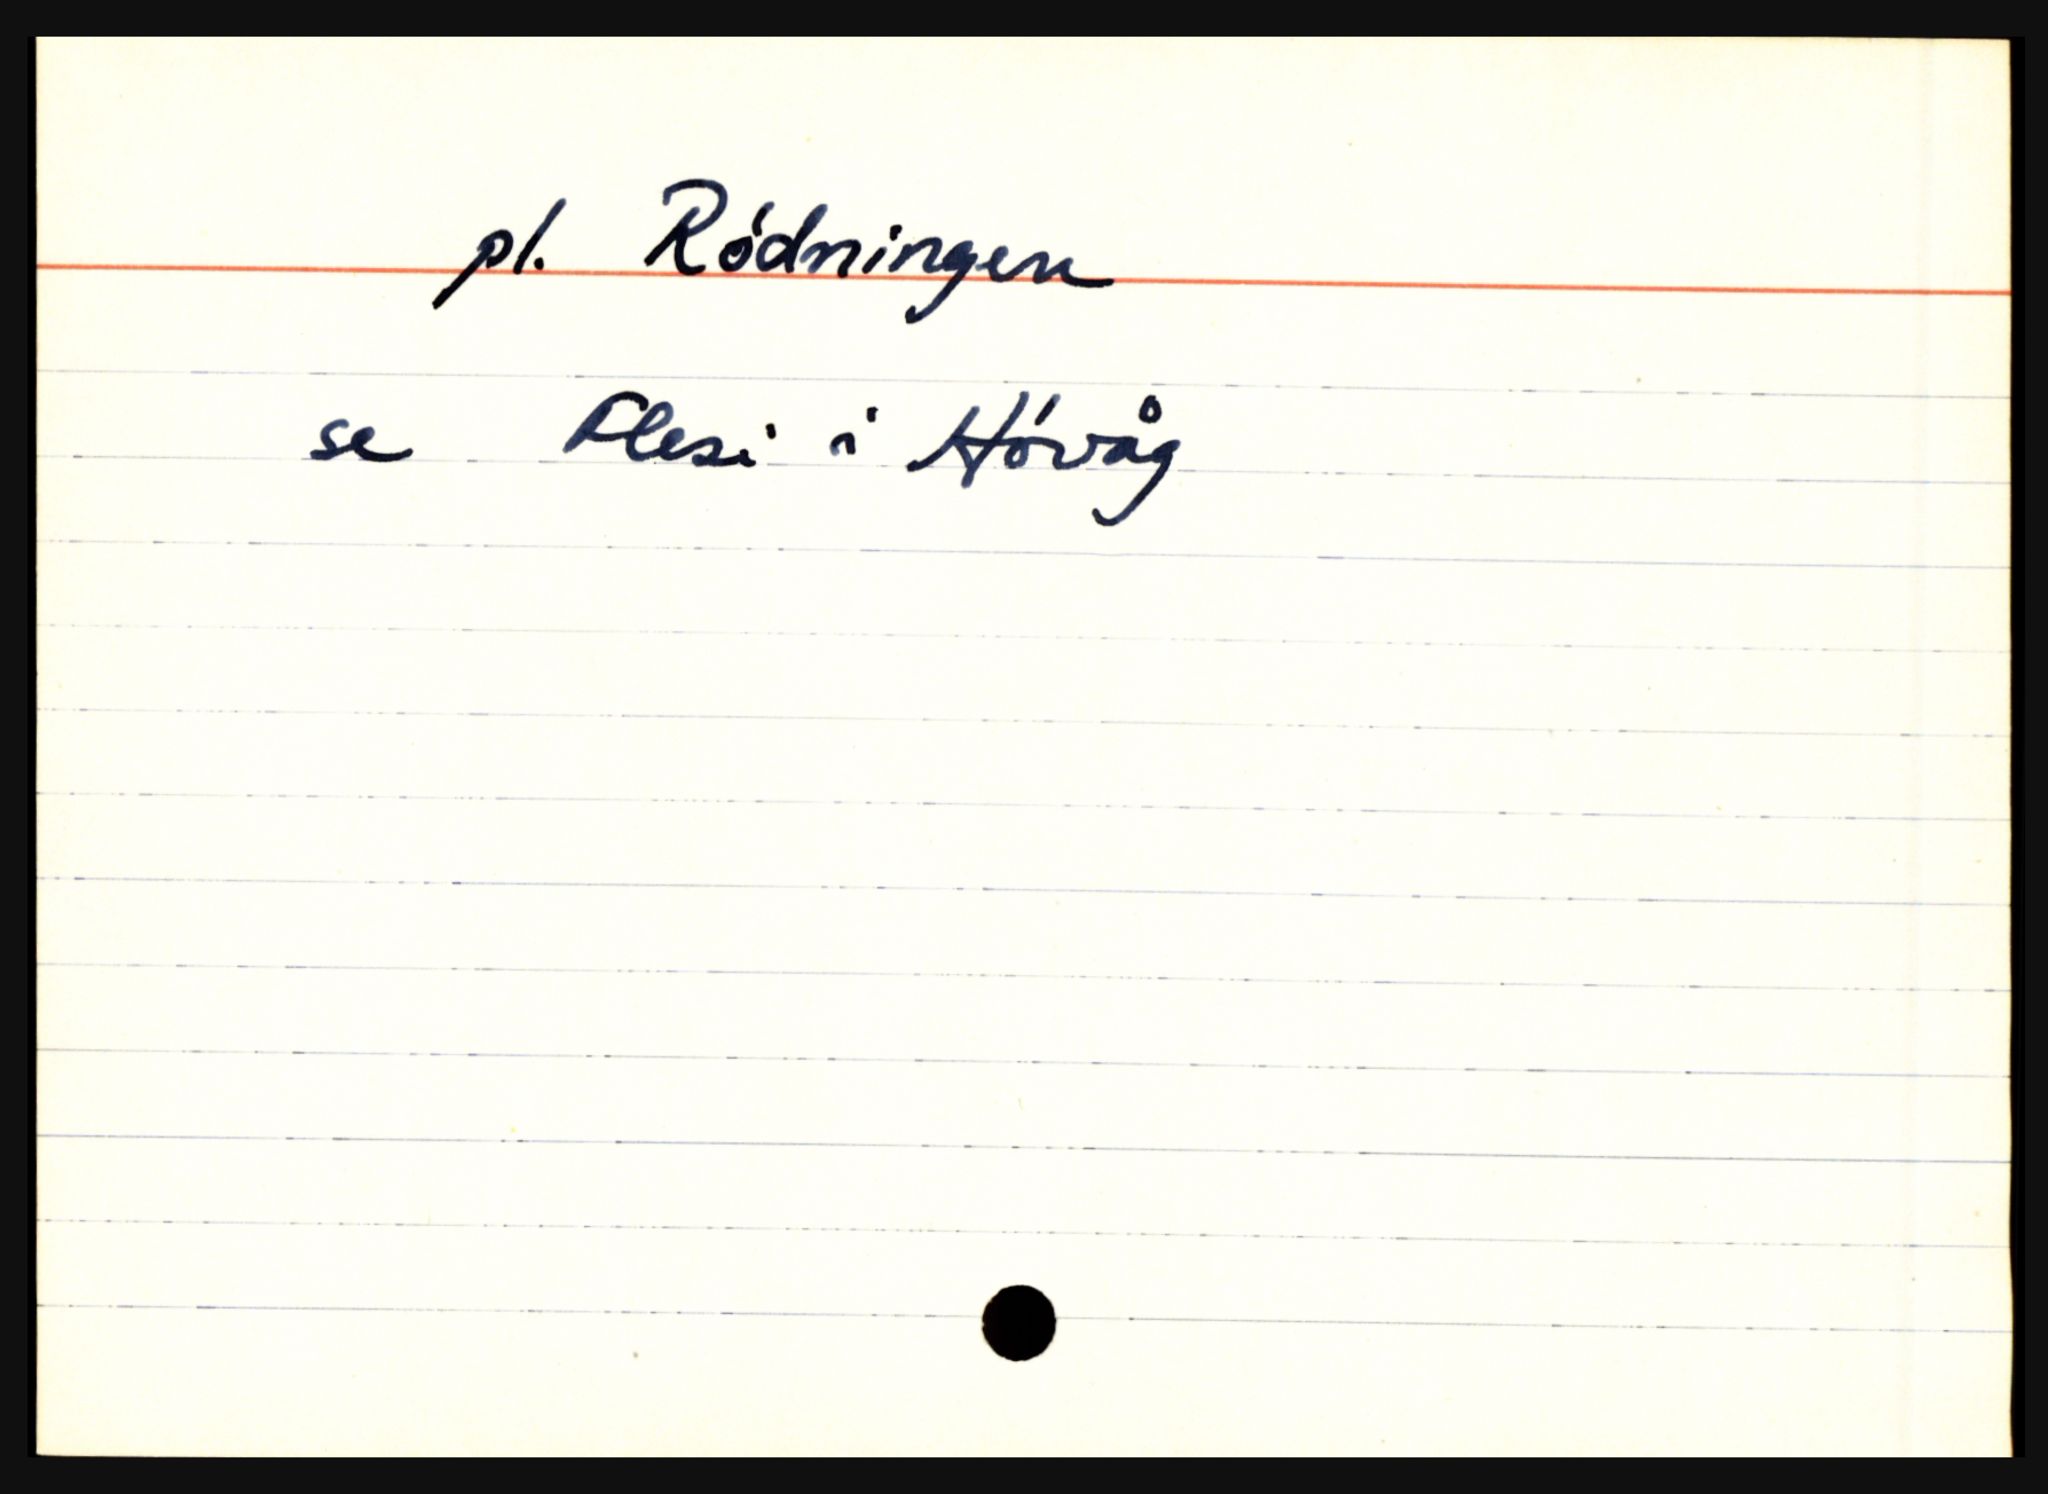 pl. Rödningen
se Flesi i Hövåg